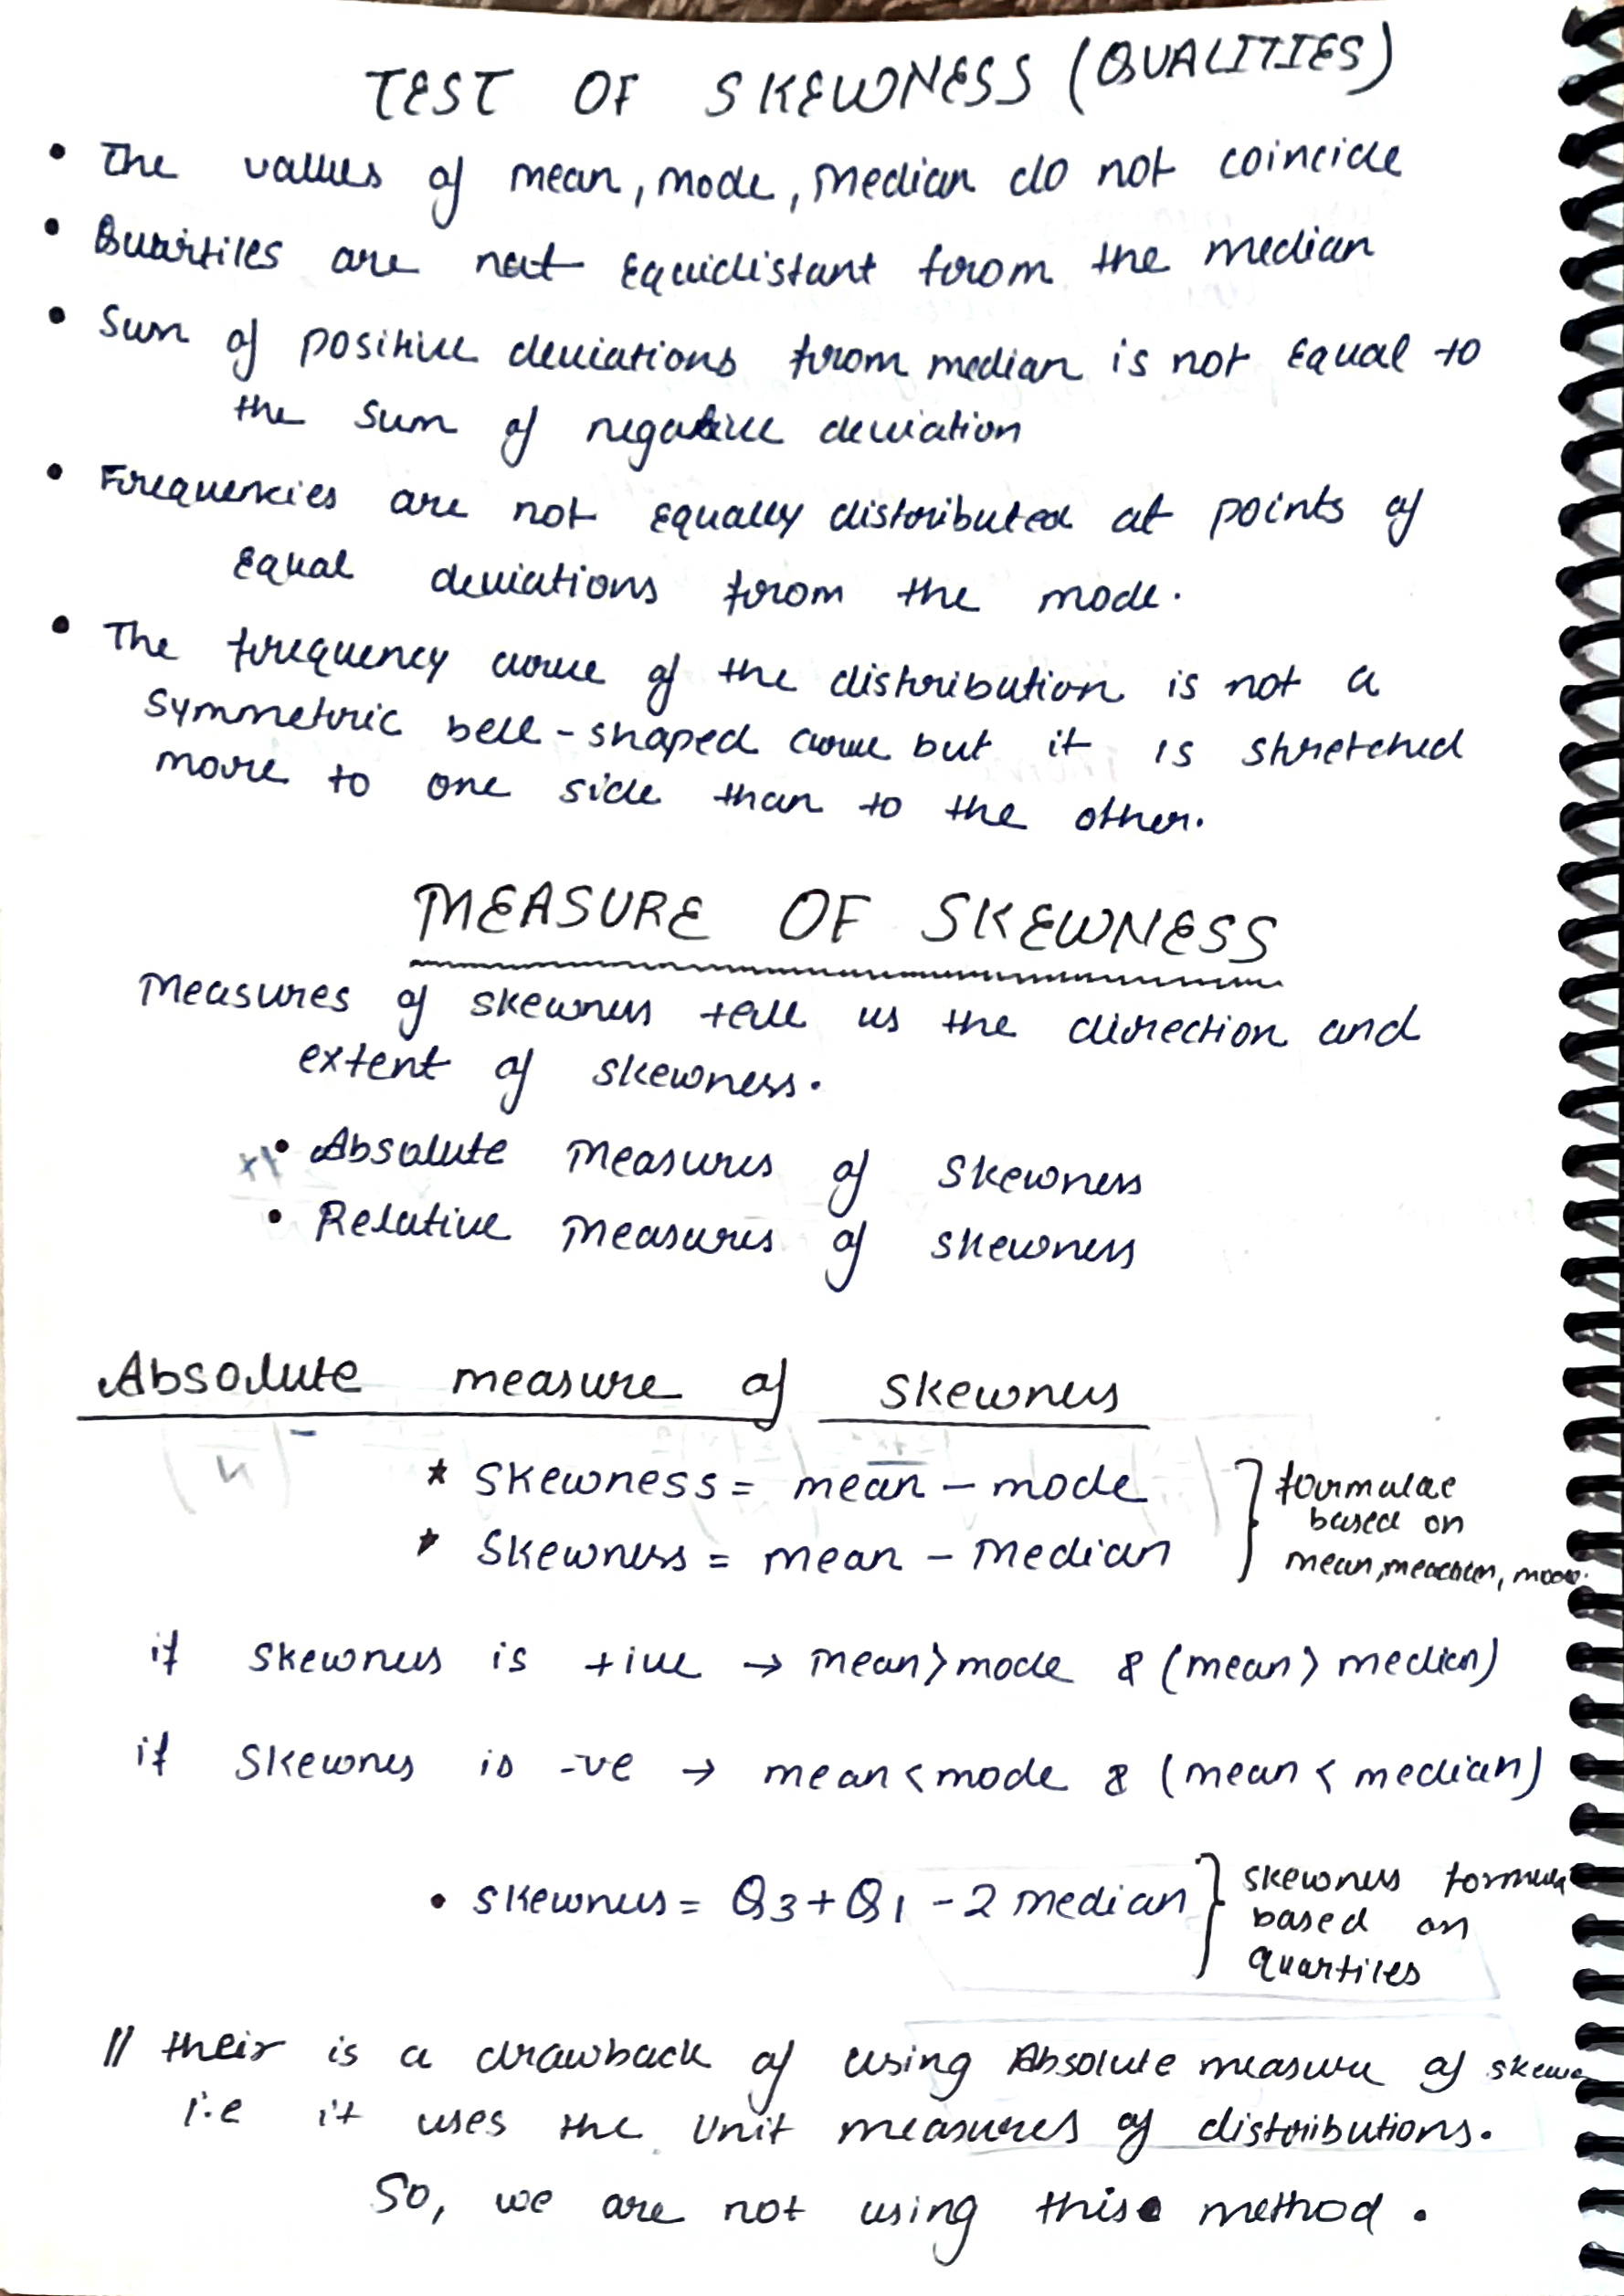 TEST OF SKEWNESS (QUALITIES)
• The values of mean, mode, median do not coincide
• Quartiles are not Equidistant from the median
• Sum of positive deviations from median is not Equal to
the sum of negative deviation
• Frequencies are not Equally distributed at points of
Equal deviations from the mode.
• The frequency curve of the distribution is not a
symmetric bell-shaped curve but it is stretched
more to one side than to the other.
MEASURE OF SKEWNESS
Measures of skewness tell us the direction and
extent of skewness.
• Absolute measures of skewness
• Relative measures of skewness
Absolute measure of skewness
* Skewness = mean - mode
* Skewness = mean - median
} formulae
based on
mean, median, mode.
if skewness is +ive → mean > mode & (mean > median)
if skewnes is -ve → mean < mode & (mean < median)
• skewness = Q3 + Q1 - 2 median
} skewness formula
based on
quartiles
// their is a drawback of using Absolute measure of skewe
i.e it uses the unit measures of distributions.
So, we are not using this method.